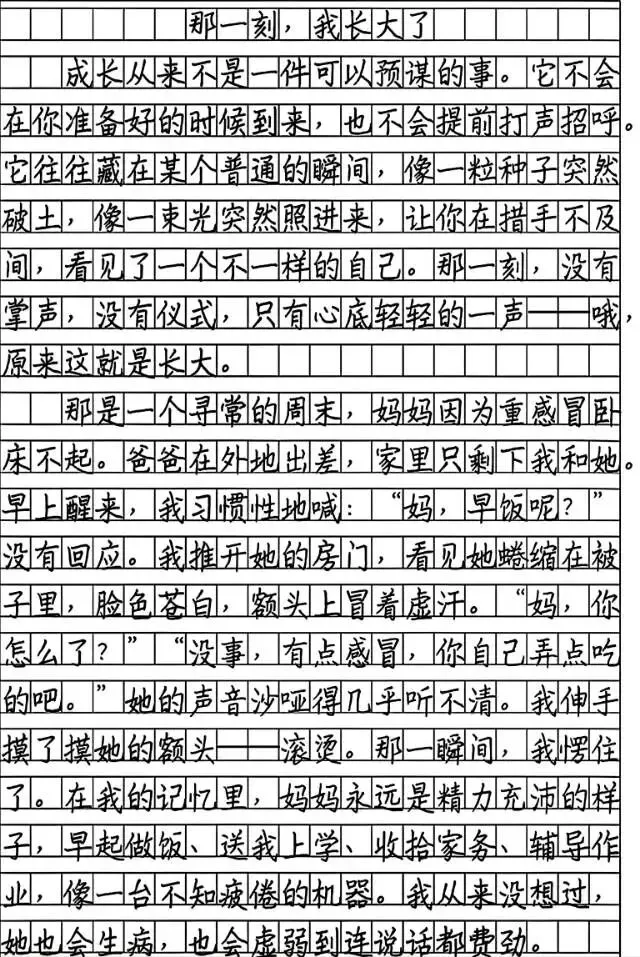 那一刻，我长大了
成长从来不是一件可以预谋的事。它不会
在你准备好的时候到来，也不会提前打声招呼。
它往往藏在某个普通的瞬间，像一粒种子突然
破土，像一束光突然照进来，让你在措手不及
间，看见了一个不一样的自己。那一刻，没有
掌声，没有仪式，只有心底轻轻的一声——哦，
原来这就是长大。
那是一个寻常的周末，妈妈因为重感冒卧
床不起。爸爸在外地出差，家里只剩下我和她。
早上醒来，我习惯性地喊：“妈，早饭呢？”
没有回应。我推开她的房门，看见她蜷缩在被
子里，脸色苍白，额头上冒着虚汗。“妈，你
怎么了？”“没事，有点感冒，你自己弄点吃
的吧。”她的声音沙哑得几乎听不清。我伸手
摸了摸她的额头——滚烫。那一瞬间，我愣住
了。在我的记忆里，妈妈永远是精力充沛的样
子，早起做饭、送我上学、收拾家务、辅导作
业，像一台不知疲倦的机器。我从来没想过，
她也会生病，也会虚弱到连说话都费劲。